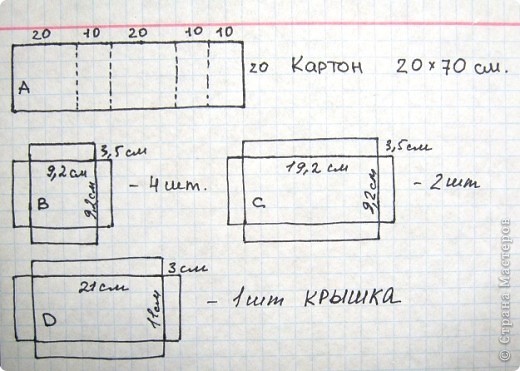 20 10 20 10 10
A
20 Картон 20×70 см.
3,5 см
9,2 см
9,2 см
B
- 4 шт.
3,5 см
19,2 см
9,2 см
C
- 2 шт
3 см
21 см
11 см
D
- 1 шт КРЫШКА
© Страна Мастеров